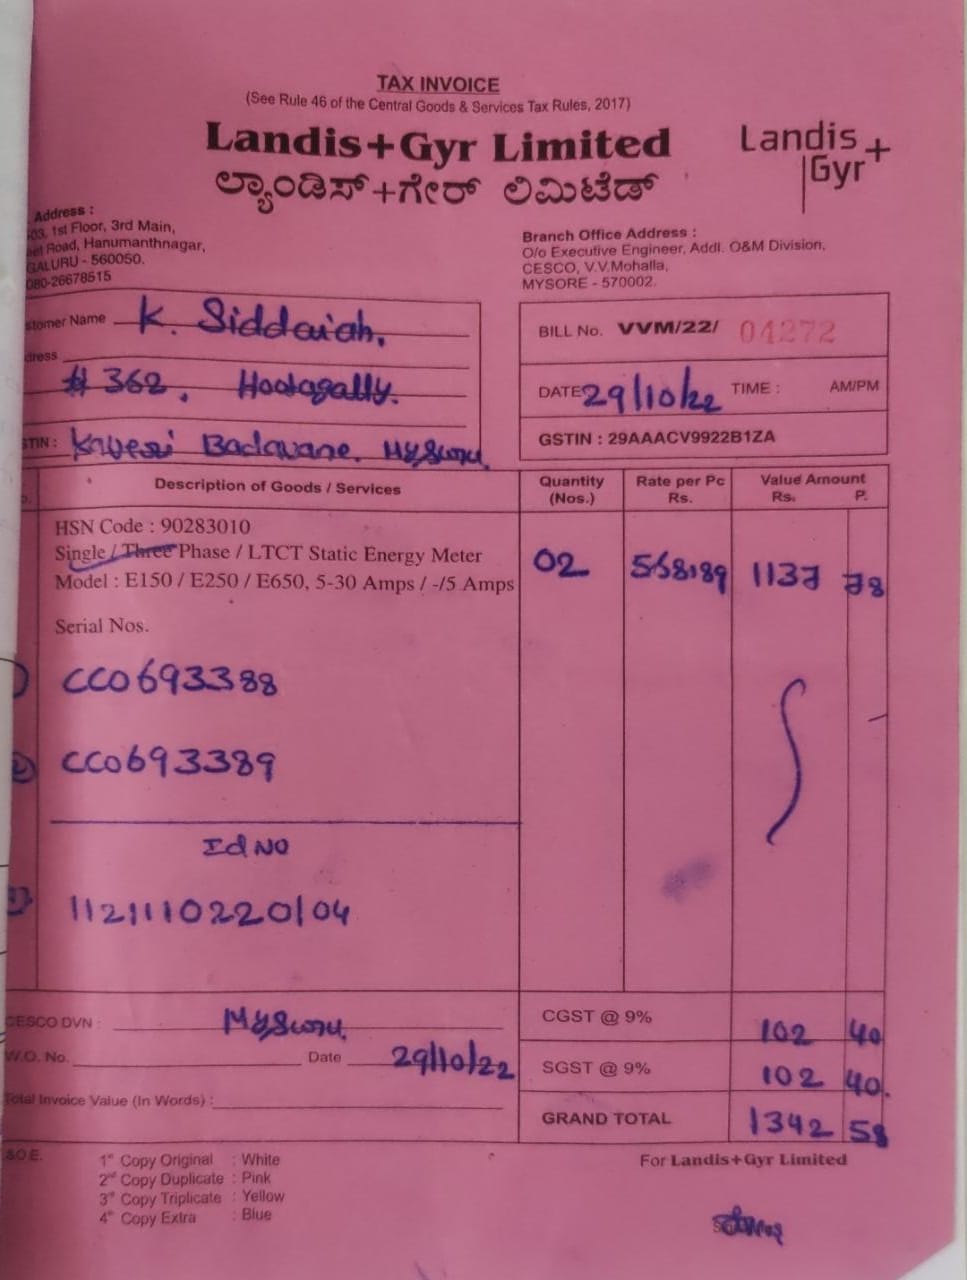 TAX INVOICE
(See Rule 46 of the Central Goods & Services Tax Rules, 2017)
Landis+Gyr Limited
ಲ್ಯಾಂಡಿಸ್+ಗೇರ್ ಲಿಮಿಟೆಡ್
Landis+
Gyr
Address :
1st Floor, 3rd Main,
Road, Hanumanthnagar,
GALURU - 560050.
080-26678515
Branch Office Address :
O/o Executive Engineer, Addl. O&M Division,
CESCO, V.V.Mohalla,
MYSORE - 570002.
stomer Name K. Siddaiah.
dress
# 362. Hootagally.
STIN : Kaveri Badavane. Mysuru
BILL No. VVM/22/ 04272
DATE 29/10/22 TIME : AM/PM
GSTIN : 29AAACV9922B1ZA
Description of Goods / Services
Quantity (Nos.)
Rate per Pc Rs.
Value Amount
Rs. P.
HSN Code : 90283010
Single / Three Phase / LTCT Static Energy Meter
Model : E150 / E250 / E650, 5-30 Amps / -/5 Amps
02 568.89 1137 78
Serial Nos.
CC0693388
2) CC0693389
Id NO
1) 1121110220104
CESCO DVN : Mysuru.
W.O. No. Date 29/10/22
Total Invoice Value (In Words) :
CGST @ 9% 102 40
SGST @ 9% 102 40.
GRAND TOTAL 1342 58
&O.E.
1st Copy Original : White
2nd Copy Duplicate : Pink
3rd Copy Triplicate : Yellow
4th Copy Extra : Blue
For Landis+Gyr Limited